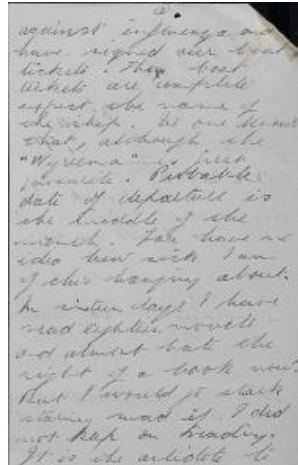 2.
against influenza and
have signed our boat
tickets. These boat
tickets are complete
except the name of
the ship. No one knows
that, although the
"Wyreema" is first
favourite. Probable
date of departure is
the middle of the
month. You have no
idea how sick I am
of this hanging about.
In sixteen days I have
read eighteen novels
and almost hate the
sight of a book now.
But I would go stark
staring mad if I did
not keep on reading.
It is the antidote to